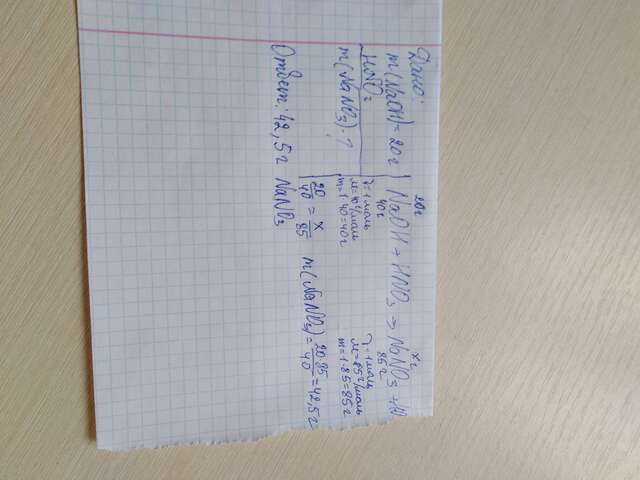 Дано:
m(NaOH)=20г
HNO₃
m(NaNO₃)-?
20г xг
NaOH + HNO₃ → NaNO₃ + H₂O
40г 85г
ν=1моль ν=1моль
M=40г/моль M=85г/моль
m=1·40=40г m=1·85=85г
20/40 = x/85 m(NaNO₃)= 20·85/40 =42,5г
Ответ: 42,5г NaNO₃